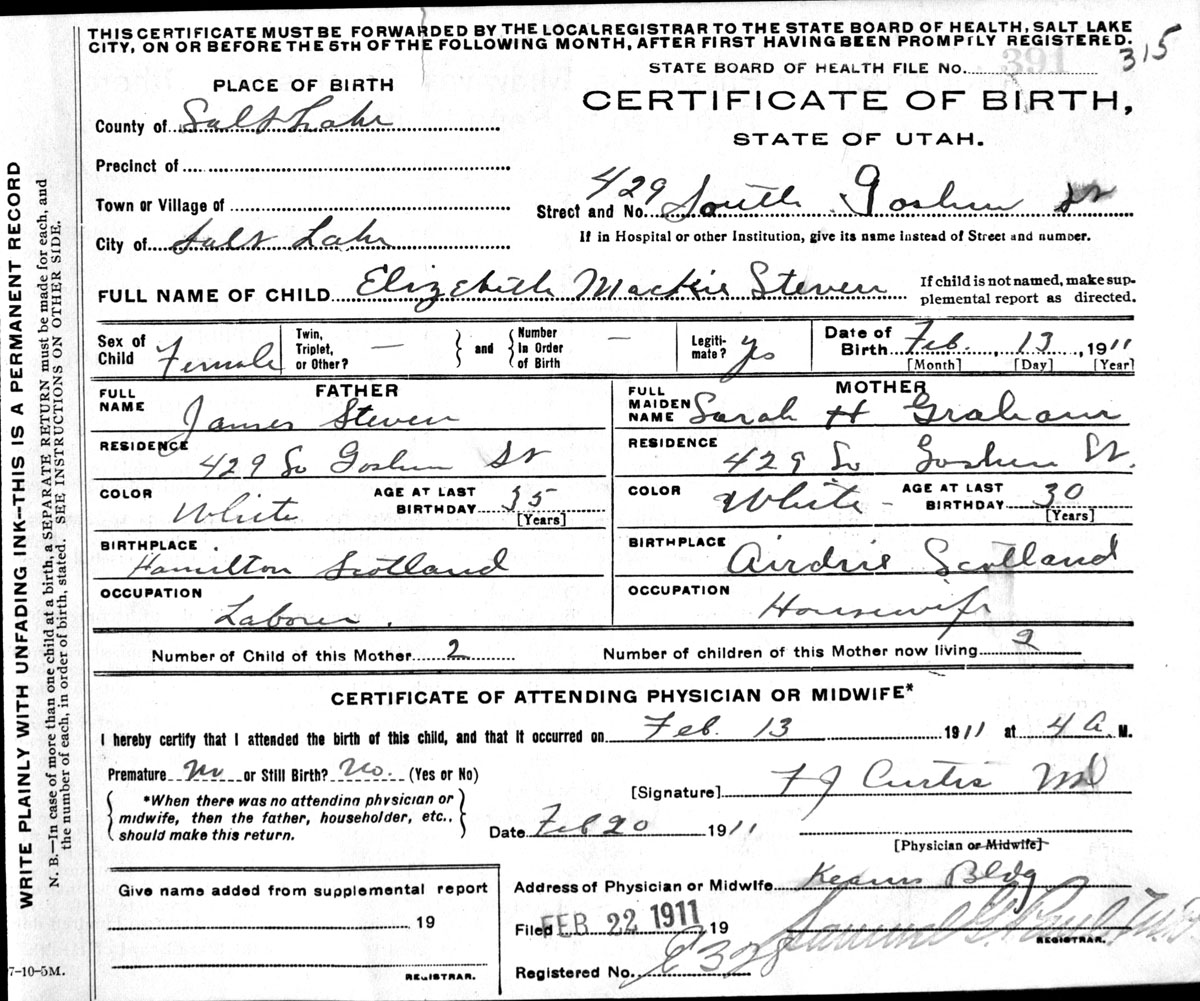 THIS CERTIFICATE MUST BE FORWARDED BY THE LOCALREGISTRAR TO THE STATE BOARD OF HEALTH, SALT LAKE
CITY, ON OR BEFORE THE 5TH OF THE FOLLOWING MONTH, AFTER FIRST HAVING BEEN PROMPTLY REGISTERED.
315
STATE BOARD OF HEALTH FILE No. 391
PLACE OF BIRTH
CERTIFICATE OF BIRTH,
STATE OF UTAH.
County of Salt Lake
Precinct of
Town or Village of
Street and No. 429 South Goshen St
City of Salt Lake
If in Hospital or other Institution, give its name instead of Street and number.
FULL NAME OF CHILD Elizabeth Mackie Steven
If child is not named, make sup-
plemental report as directed.
Sex of Child Female
Twin, Triplet, or Other? —
and
Number In Order of Birth —
Legiti-mate? Yes
Date of Birth Feb. 13, 1911
[Month] [Day] [Year]
FATHER
FULL NAME James Steven
RESIDENCE 429 So Goshen St
COLOR White AGE AT LAST BIRTHDAY 35 [Years]
BIRTHPLACE Hamilton Scotland
OCCUPATION Laborer.
MOTHER
FULL MAIDEN NAME Sarah H Graham
RESIDENCE 429 So Goshen St.
COLOR White - AGE AT LAST BIRTHDAY 30 [Years]
BIRTHPLACE Airdrie Scotland
OCCUPATION Housewife
Number of Child of this Mother 2 Number of children of this Mother now living 2
CERTIFICATE OF ATTENDING PHYSICIAN OR MIDWIFE*
I hereby certify that I attended the birth of this child, and that it occurred on Feb. 13 1911 at 4 A. M.
Premature No or Still Birth? No. (Yes or No)
*When there was no attending physician or
midwife, then the father, householder, etc.,
should make this return.
[Signature] F J Curtis MD
Date Feb 20 1911
[Physician or Midwife]
Give name added from supplemental report
19
REGISTRAR.
Address of Physician or Midwife Kearns Bldg
Filed FEB 22 1911 19
Samuel G. Paul
REGISTRAR.
Registered No. 328
7-10-5M.
WRITE PLAINLY WITH UNFADING INK—THIS IS A PERMANENT RECORD
N. B.—In case of more than one child at a birth, a SEPARATE RETURN must be made for each, and
the number of each, in order of birth, stated. SEE INSTRUCTIONS ON OTHER SIDE.